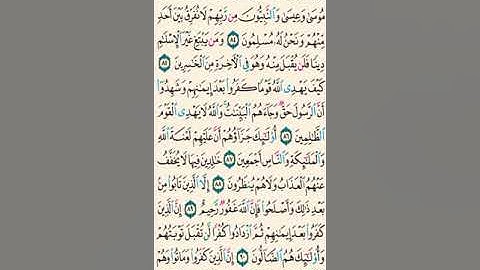 مُوسَىٰ وَعِيسَىٰ وَالنَّبِيُّونَ مِن رَّبِّهِمْ لَا نُفَرِّقُ بَيْنَ أَحَدٍ
مِّنْهُمْ وَنَحْنُ لَهُ مُسْلِمُونَ ٨٤ وَمَن يَبْتَغِ غَيْرَ الْإِسْلَٰمِ
دِينًا فَلَن يُقْبَلَ مِنْهُ وَهُوَ فِي الْآخِرَةِ مِنَ الْخَٰسِرِينَ ٨٥
كَيْفَ يَهْدِي اللَّهُ قَوْمًا كَفَرُوا بَعْدَ إِيمَٰنِهِمْ وَشَهِدُوا
أَنَّ الرَّسُولَ حَقٌّ وَجَاءَهُمُ الْبَيِّنَٰتُ وَاللَّهُ لَا يَهْدِي الْقَوْمَ
الظَّٰلِمِينَ ٨٦ أُولَٰئِكَ جَزَاؤُهُمْ أَنَّ عَلَيْهِمْ لَعْنَةَ اللَّهِ
وَالْمَلَٰئِكَةِ وَالنَّاسِ أَجْمَعِينَ ٨٧ خَٰلِدِينَ فِيهَا لَا يُخَفَّفُ
عَنْهُمُ الْعَذَابُ وَلَا هُمْ يُنظَرُونَ ٨٨ إِلَّا الَّذِينَ تَابُوا مِن
بَعْدِ ذَٰلِكَ وَأَصْلَحُوا فَإِنَّ اللَّهَ غَفُورٌ رَّحِيمٌ ٨٩ إِنَّ الَّذِينَ
كَفَرُوا بَعْدَ إِيمَٰنِهِمْ ثُمَّ ازْدَادُوا كُفْرًا لَّن تُقْبَلَ تَوْبَتُهُمْ
وَأُولَٰئِكَ هُمُ الضَّالُّونَ ٩٠ إِنَّ الَّذِينَ كَفَرُوا وَمَاتُوا وَهُمْ